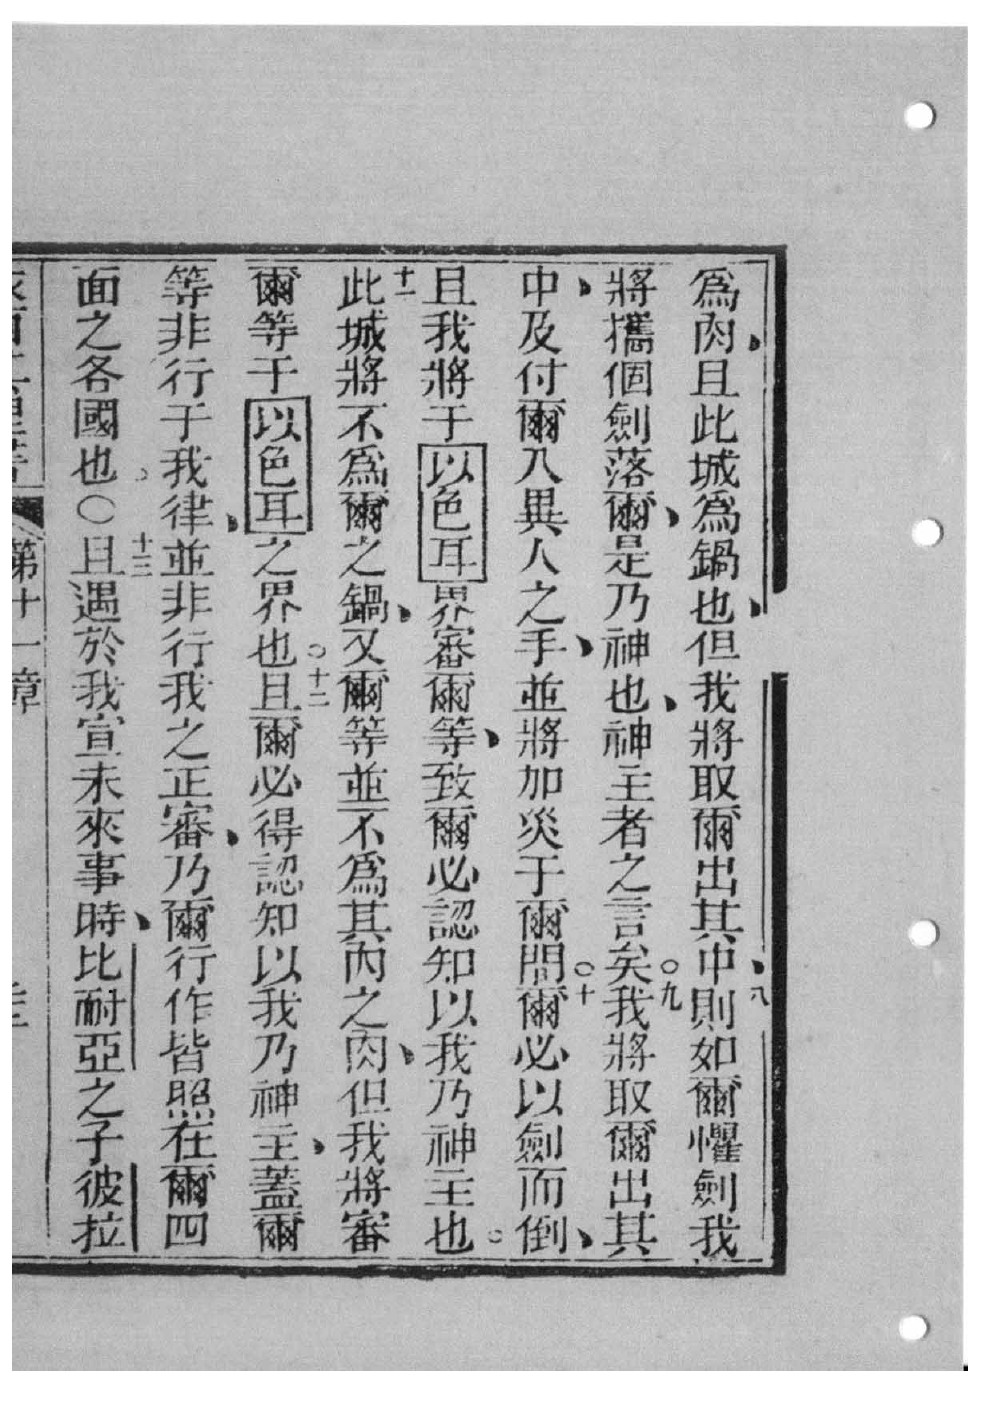 爲肉、且此城爲鍋也、但我將取爾出其中、八則如爾懼劍我
將攜個劍落爾、是乃神也、神主者之言矣○九我將取爾出其
中、及付爾入異人之手、並將加災于爾間○十爾必以劍而倒、
且我將于以色耳界審爾等、致爾必認知以我乃神主也○
十一此城將不爲爾之鍋、又爾等並不爲其內之肉、但我將審
爾等于以色耳之界也○十二且爾必得認知以我乃神主、蓋爾
等非行于我律、並非行我之正審、乃爾行作皆照在爾四
面之各國也○十三且遇於我宣未來事時、比耐亞之子彼拉
第十一章